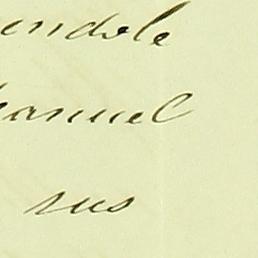 endole
hanuel
sus